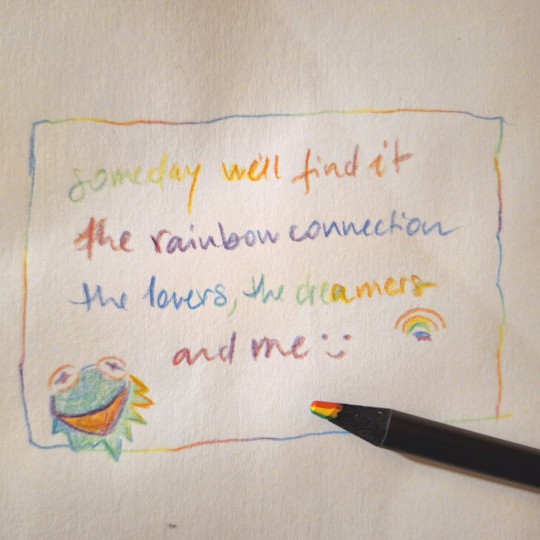 someday we'll find it
the rainbow connection
the lovers, the dreamers
and me :)